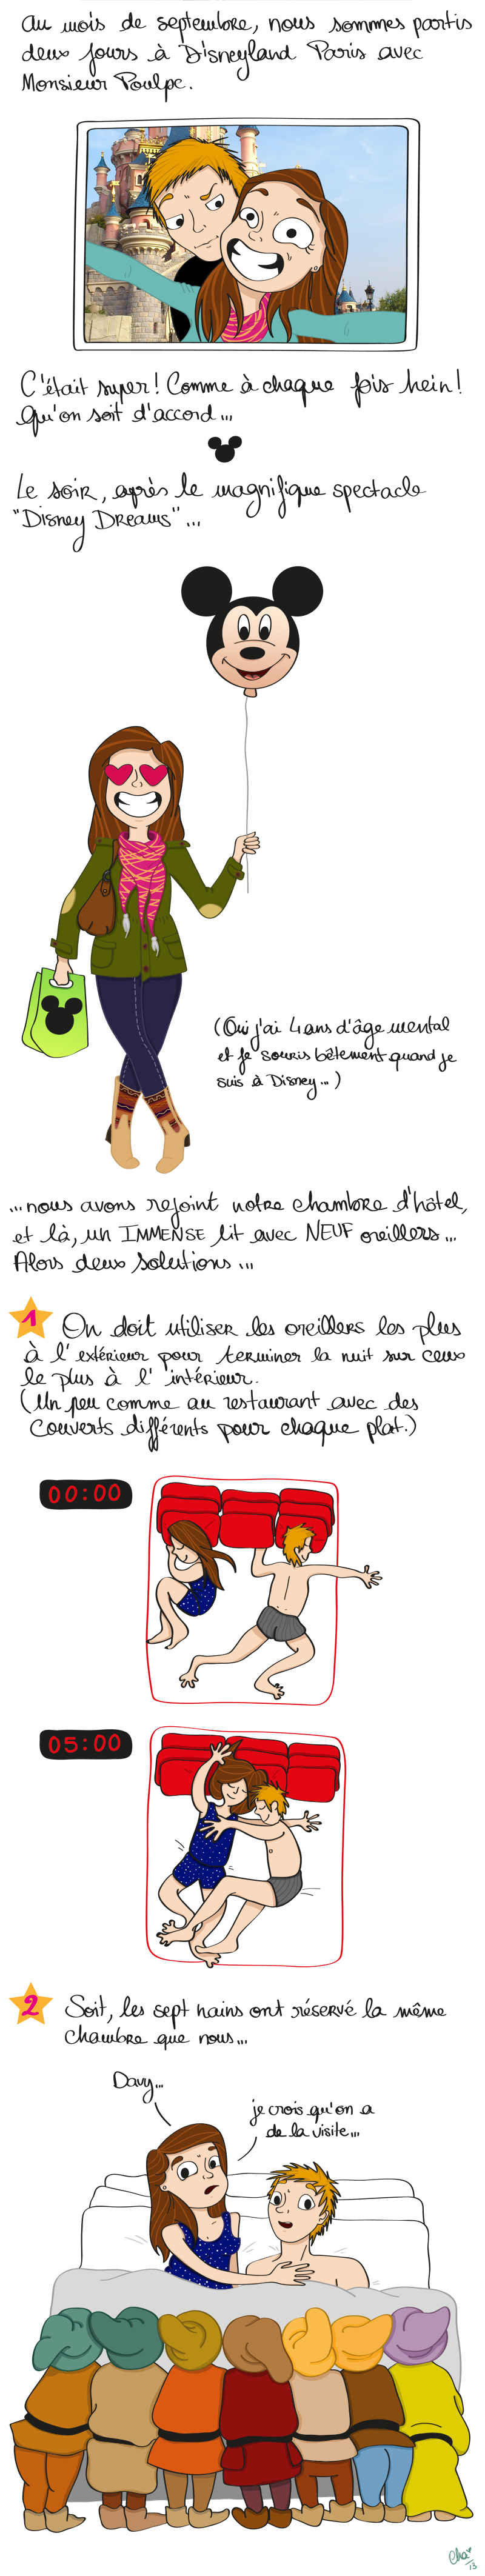 au mois de septembre, nous sommes partis
deux jours à Disneyland Paris avec
Monsieur Poulpe.
C'était super! Comme à chaque fois hein!
Qu'on soit d'accord...
Le soir, après le magnifique spectacle
"Disney Dreams"...
(Oui j'ai 4 ans d'âge mental
et je souris bêtement quand je
suis à Disney...)
...nous avons rejoint notre chambre d'hôtel,
et là, un IMMENSE lit avec NEUF oreillers...
Alors deux solutions...
1 On doit utiliser les oreillers les plus
à l'extérieur pour terminer la nuit sur ceux
le plus à l'intérieur.
(Un peu comme au restaurant avec des
couverts différents pour chaque plat.)
00:00
05:00
2 Soit, les sept nains ont réservé la même
chambre que nous...
Davy...
je crois qu'on a
de la visite...
Cha
/13